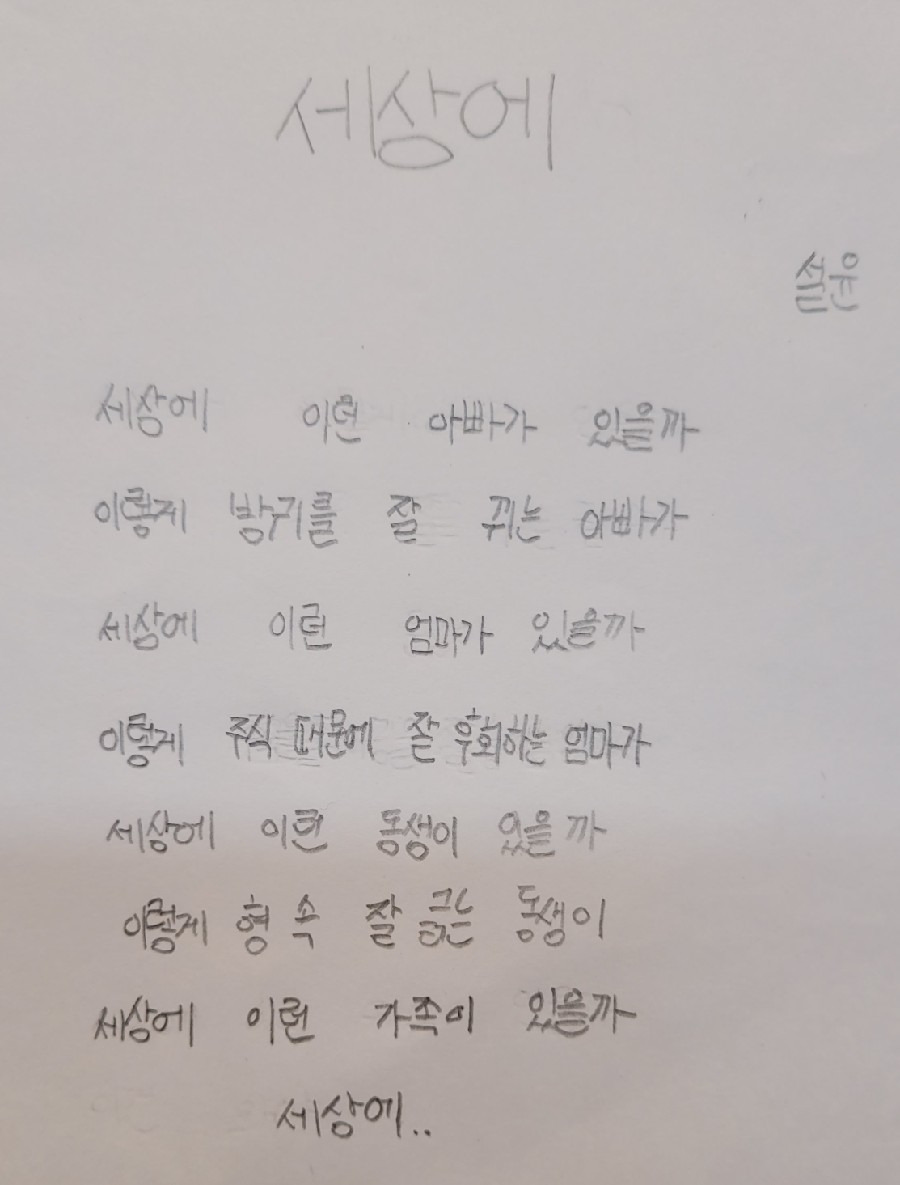 세상에
설윤
세상에 이런 아빠가 있을까
이렇게 방귀를 잘 뀌는 아빠가
세상에 이런 엄마가 있을까
이렇게 주식 때문에 잘 후회하는 엄마가
세상에 이런 동생이 있을까
이렇게 형 속 잘 긁는 동생이
세상에 이런 가족이 있을까
세상에..